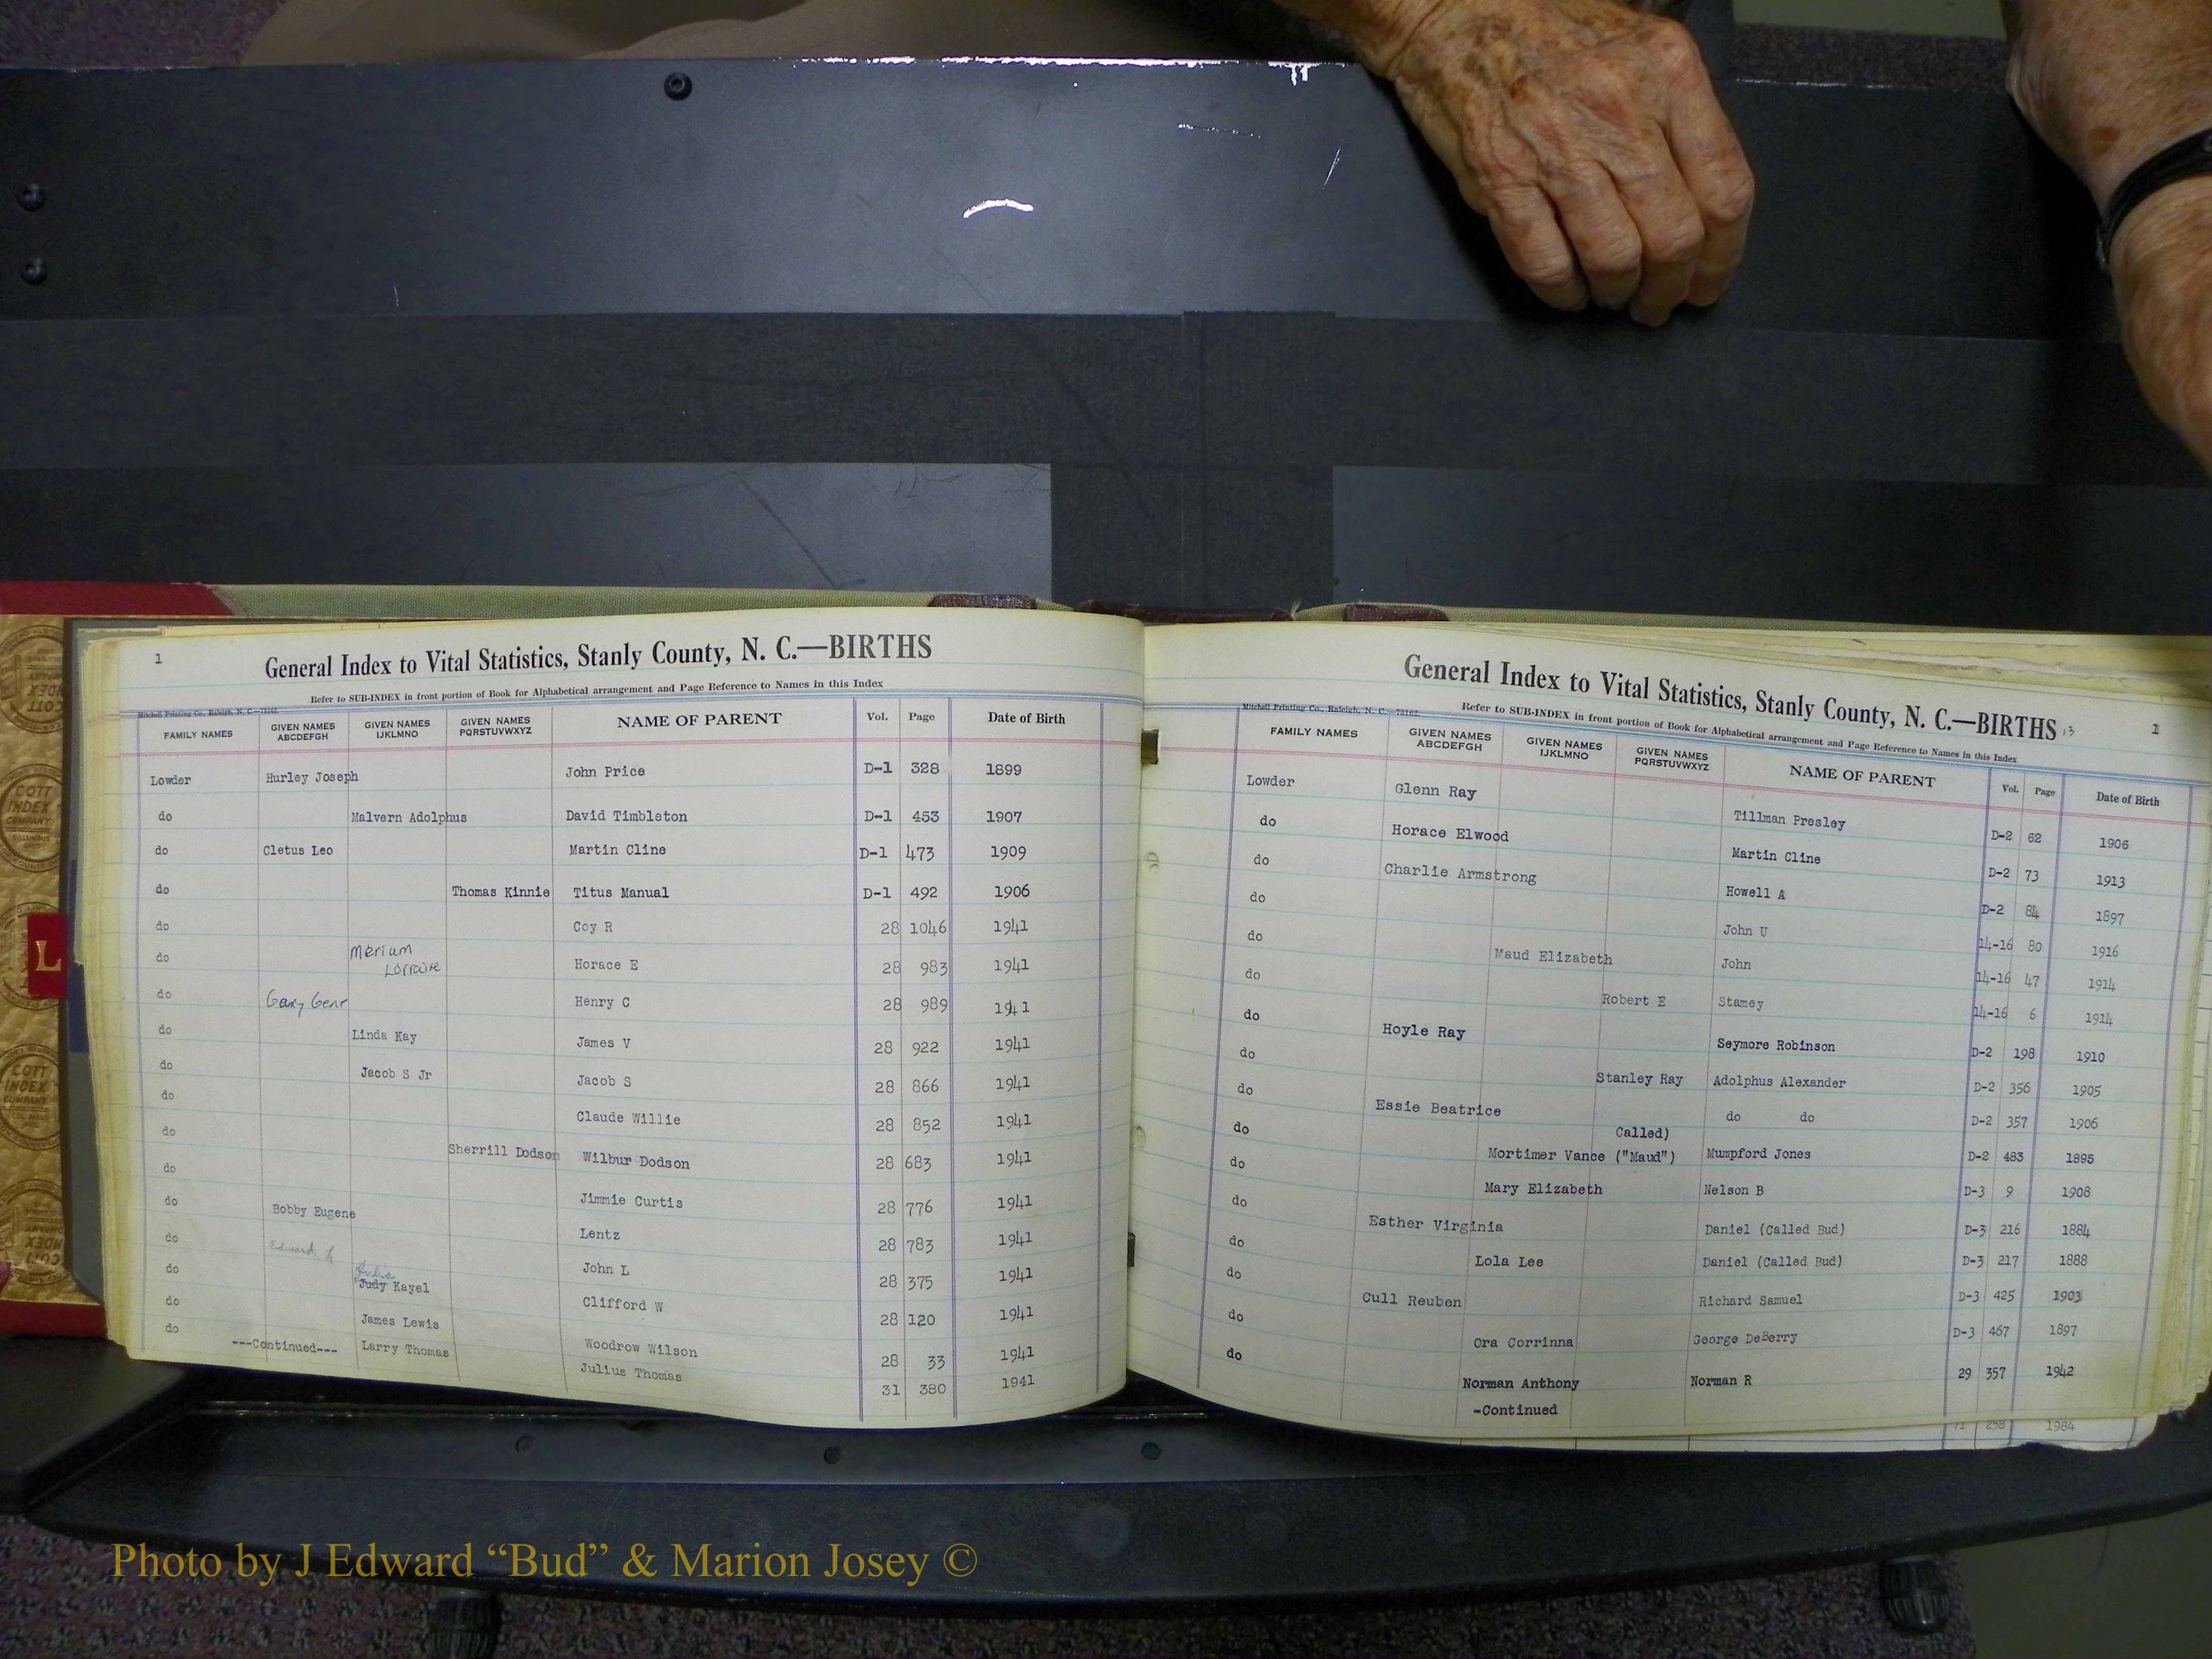 1
General Index to Vital Statistics, Stanly County, N. C.—BIRTHS
Refer to SUB-INDEX in front portion of Book for Alphabetical arrangement and Page Reference to Names in this Index
Mitchell Printing Co., Raleigh, N. C.—73162
FAMILY NAMES GIVEN NAMES ABCDEFGH GIVEN NAMES IJKLMNO GIVEN NAMES PQRSTUVWXYZ NAME OF PARENT Vol. Page Date of Birth
Lowder Hurley Joseph John Price D-1 328 1899
do Malvern Adolphus David Timbleton D-1 453 1907
do Cletus Leo Martin Cline D-1 473 1909
do Thomas Kinnie Titus Manual D-1 492 1906
do Coy R 28 1046 1941
do Merium Lorraine Horace E 28 983 1941
do Gary Gene Henry C 28 989 1941
do Linda Kay James V 28 922 1941
do Jacob S Jr Jacob S 28 866 1941
do Claude Willie 28 852 1941
do Sherrill Dodson Wilbur Dodson 28 683 1941
do Jimmie Curtis 28 776 1941
do Bobby Eugene Lentz 28 783 1941
do Edward John L 28 375 1941
do Judy Kayel Clifford W 28 120 1941
do James Lewis Woodrow Wilson 28 33 1941
do Larry Thomas Julius Thomas 31 380 1941
---Continued---
General Index to Vital Statistics, Stanly County, N. C.—BIRTHS 13 1
Refer to SUB-INDEX in front portion of Book for Alphabetical arrangement and Page Reference to Names in this Index
Mitchell Printing Co., Raleigh, N. C.—73162
FAMILY NAMES GIVEN NAMES ABCDEFGH GIVEN NAMES IJKLMNO GIVEN NAMES PQRSTUVWXYZ NAME OF PARENT Vol. Page Date of Birth
Lowder Glenn Ray Tillman Presley D-2 62 1906
do Horace Elwood Martin Cline D-2 73 1913
do Charlie Armstrong Howell A D-2 84 1897
do John U 14-16 80 1916
do Maud Elizabeth John 14-16 47 1914
do Robert E Stamey 14-16 6 1914
do Hoyle Ray Seymore Robinson D-2 198 1910
do Stanley Ray Adolphus Alexander D-2 356 1905
do Essie Beatrice do do D-2 357 1906
Called)
do Mortimer Vance ("Maud") Mumpford Jones D-2 483 1895
do Mary Elizabeth Nelson B D-3 9 1908
do Esther Virginia Daniel (Called Bud) D-3 216 1884
do Lola Lee Daniel (Called Bud) D-3 217 1888
do Cull Reuben Richard Samuel D-3 425 1903
do Ora Corrinna George DeBerry D-3 467 1897
do Norman Anthony Norman R 29 357 1942
-Continued
71 258 1984
COTT INDEX COMPANY
COTT INDEX COMPANY
L
Photo by J Edward “Bud” & Marion Josey ©